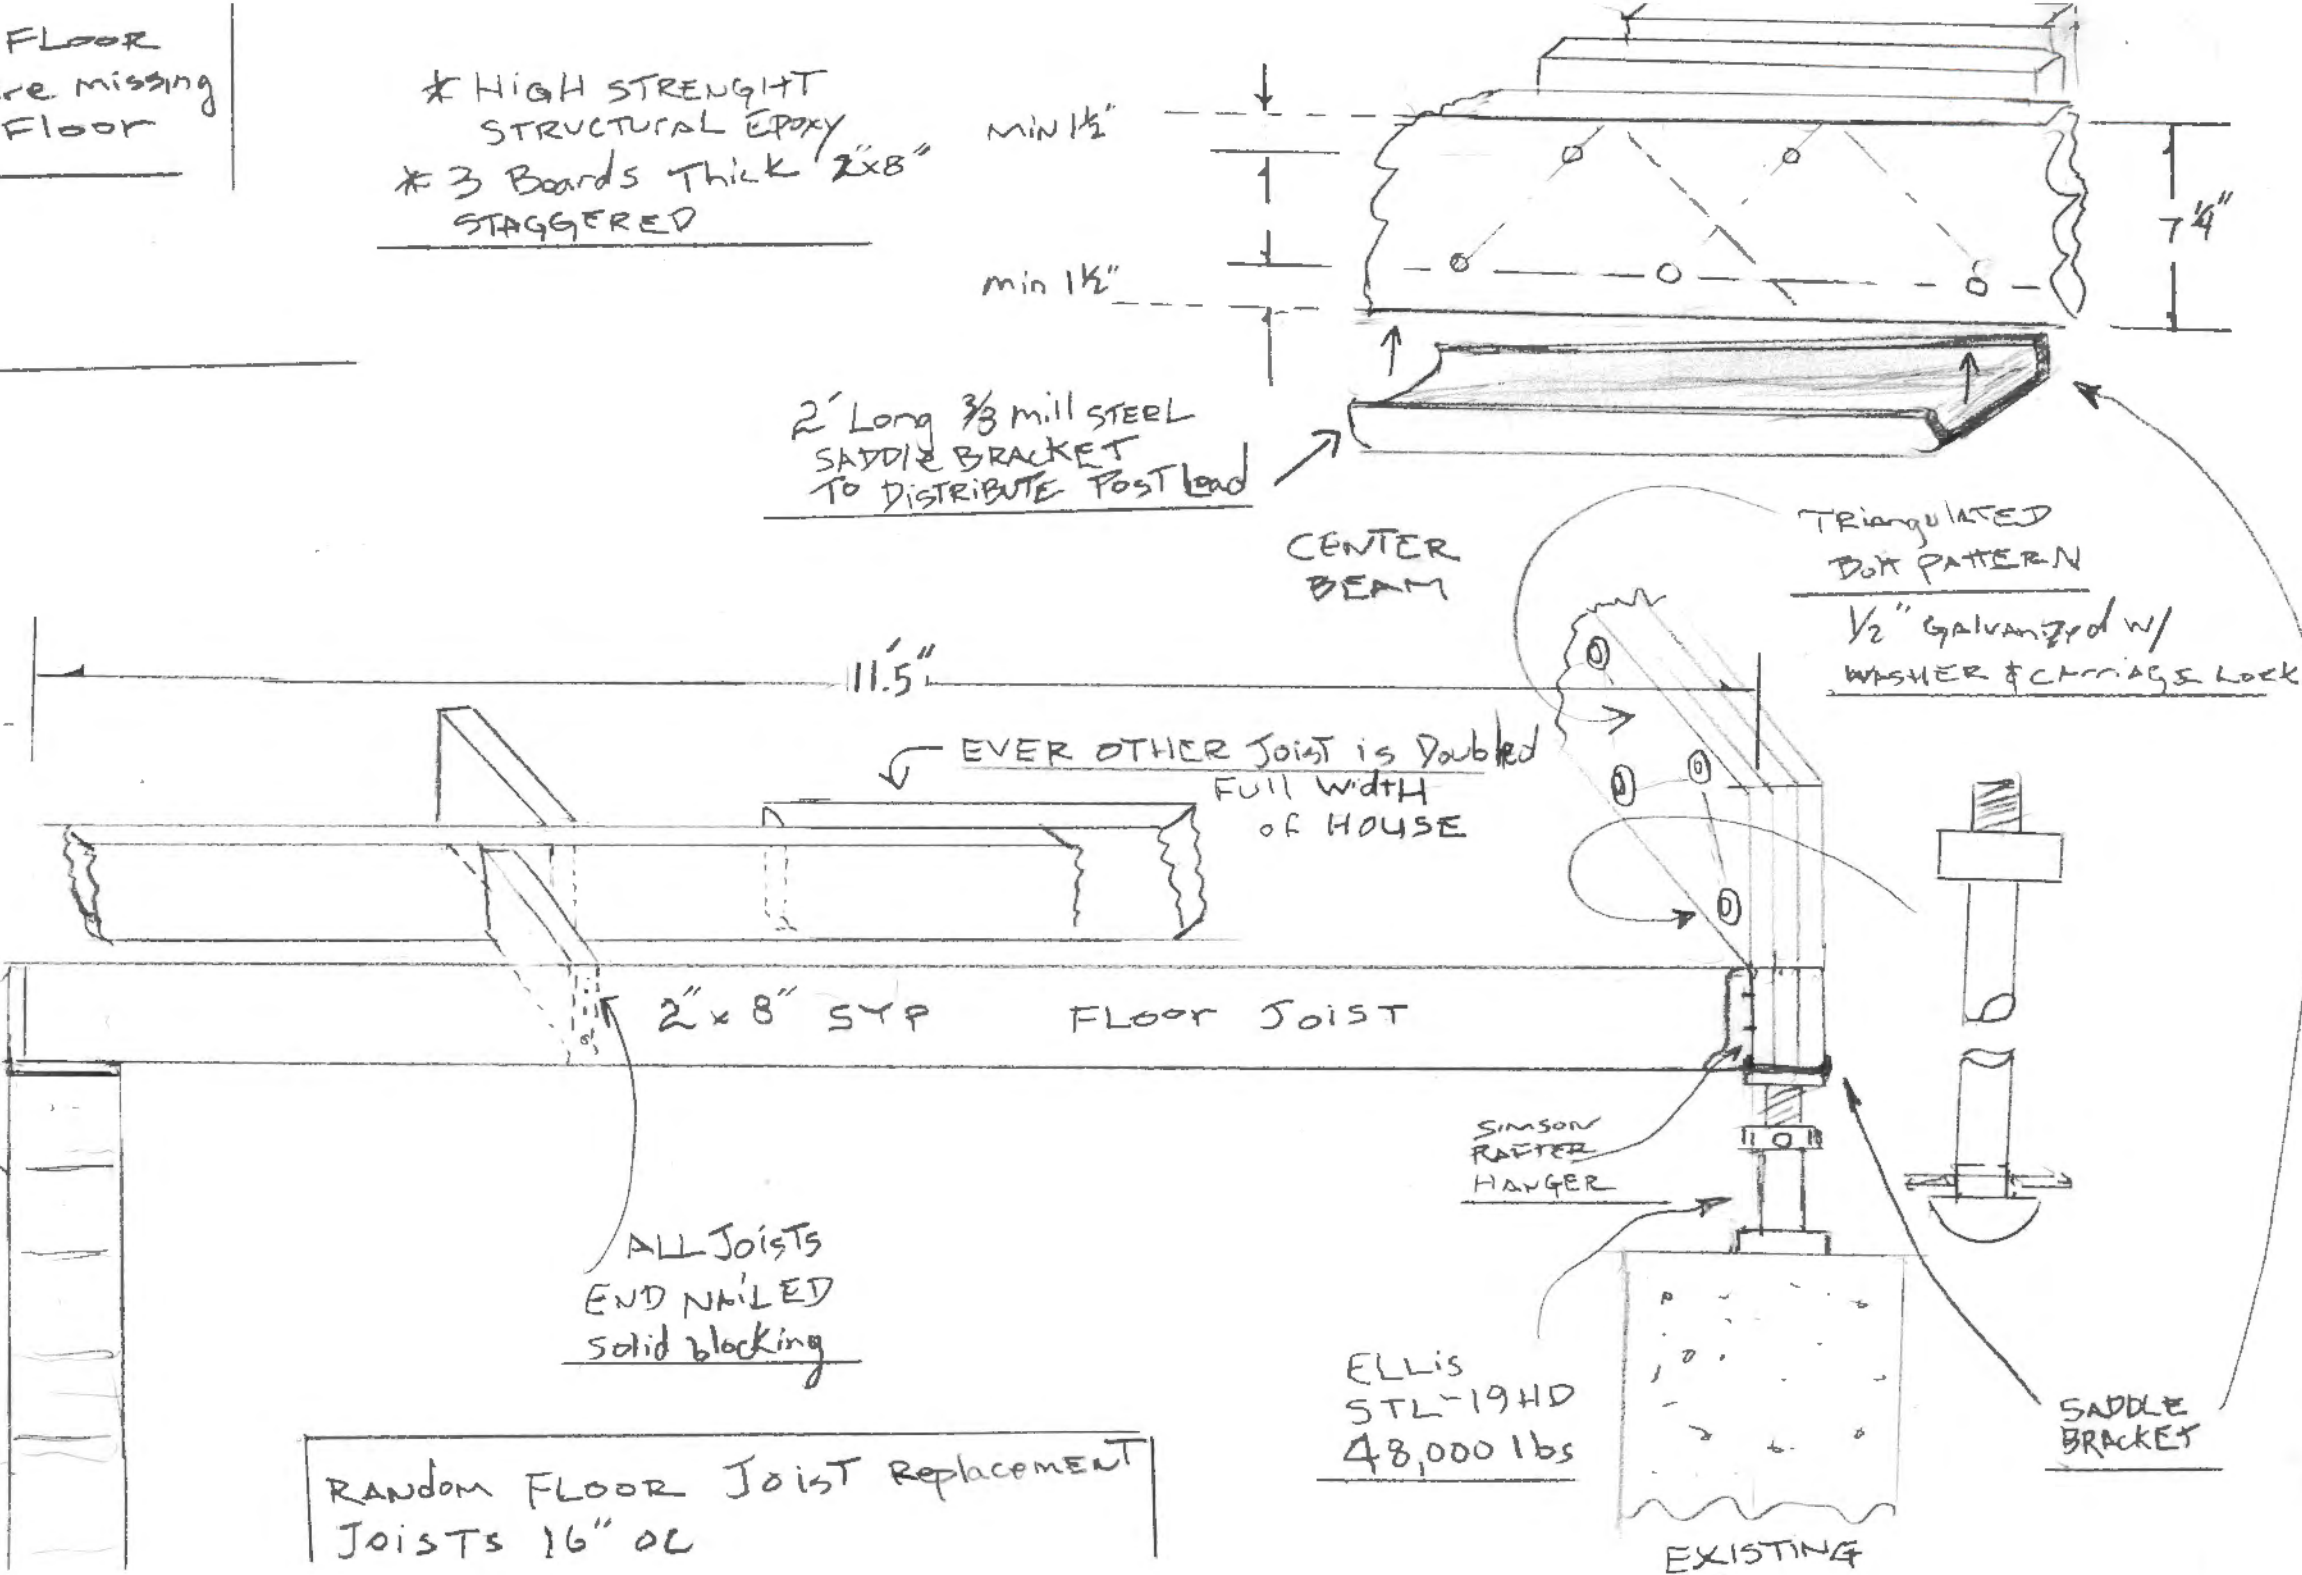 FLOOR
re missing
Floor
* HIGH STRENGHT
STRUCTURAL EPOXY
* 3 Boards Thick 2"x8"
STAGGERED
MIN 1½"
min 1½"
7 ¼"
2' Long 3/8 mill STEEL
SADDLE BRACKET
TO DISTRIBUTE POST Load
CENTER
BEAM
TRiangulATED
Bolt PATTERN
1/2" Galvanized w/
WASHER & CArriAGE LOCK
11'.5"
EVER OTHER Joist is Doubled
Full WidtH
of HOUSE
2" x 8" SYP FLoor JoisT
SIMSON
RAFTER
HANGER
ALL JoisTs
END NAILED
Solid blocking
ELLIS
STL-19HD
48,000 lbs
SADDLE
BRACKET
RANdom FLOOR JoisT ReplacemenT
JoisTs 16" OC
EXISTING